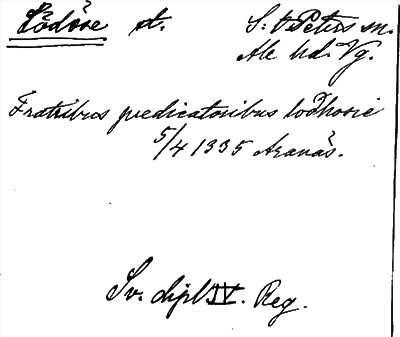 Lödöse st. S:t Peters sn.
Ale hd. Vg.
Fratribus predicatoribus lodhosie
5/4 1335 Aranäs.
Sv. dipl IV. Reg.